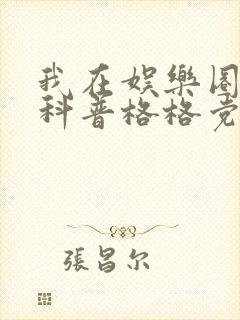 我在娱樂圈
科普格格党
張昌尔